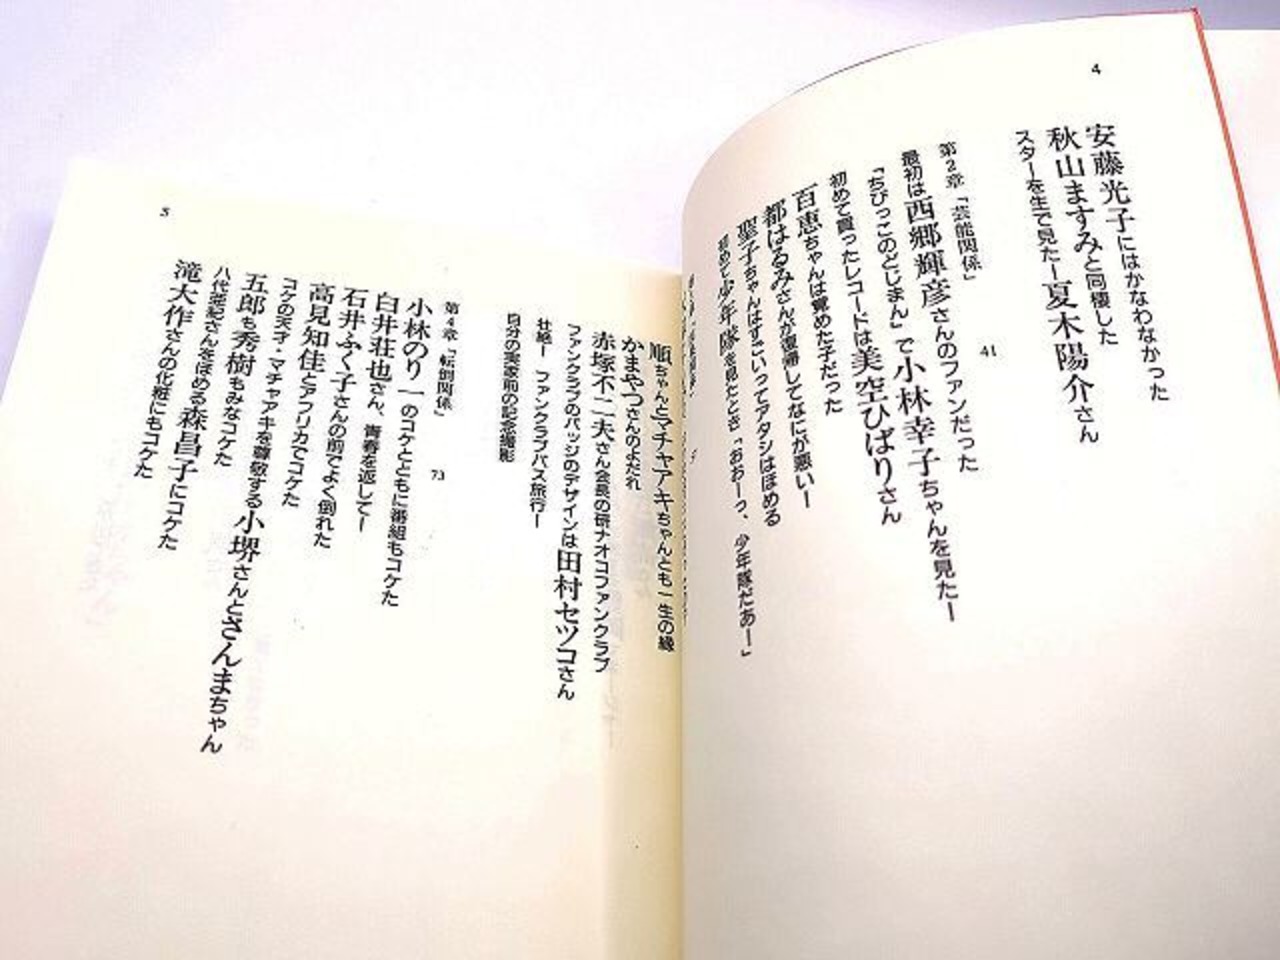 4
安藤光子にはかなわなかった
秋山ますみと同棲した
スターを生で見たー夏木陽介さん
第2章「芸能関係」
41
最初は西郷輝彦さんのファンだった
「ちびっこのどじまん」で小林幸子ちゃんを見たー
初めて買ったレコードは美空ひばりさん
百恵ちゃんは覚めた子だった
都はるみさんが復帰してなにが悪いー
聖子ちゃんはすごいってアタシはほめる
初めて少年隊を見たとき「おおーっ、少年隊だあー」
順ちゃんとマチャアキちゃんとも一生の縁
かまやつさんのよだれ
赤塚不二夫さん会長の研ナオコファンクラブ
ファンクラブのバッジのデザインは田村セツコさん
壮絶ー ファンクラブバス旅行ー
自分の実家前の記念撮影
第4章「転倒関係」
73
小林のり一のコケとともに番組もコケた
白井荘也さん、青春を返してー
石井ふく子さんの前でよく倒れた
高見知佳とアフリカでコケた
コケの天才・マチャアキを尊敬する小堺さんとさんまちゃん
五郎も秀樹もみなコケた
八代亜紀さんをほめる森昌子にコケた
滝大作さんの化粧にもコケた
5